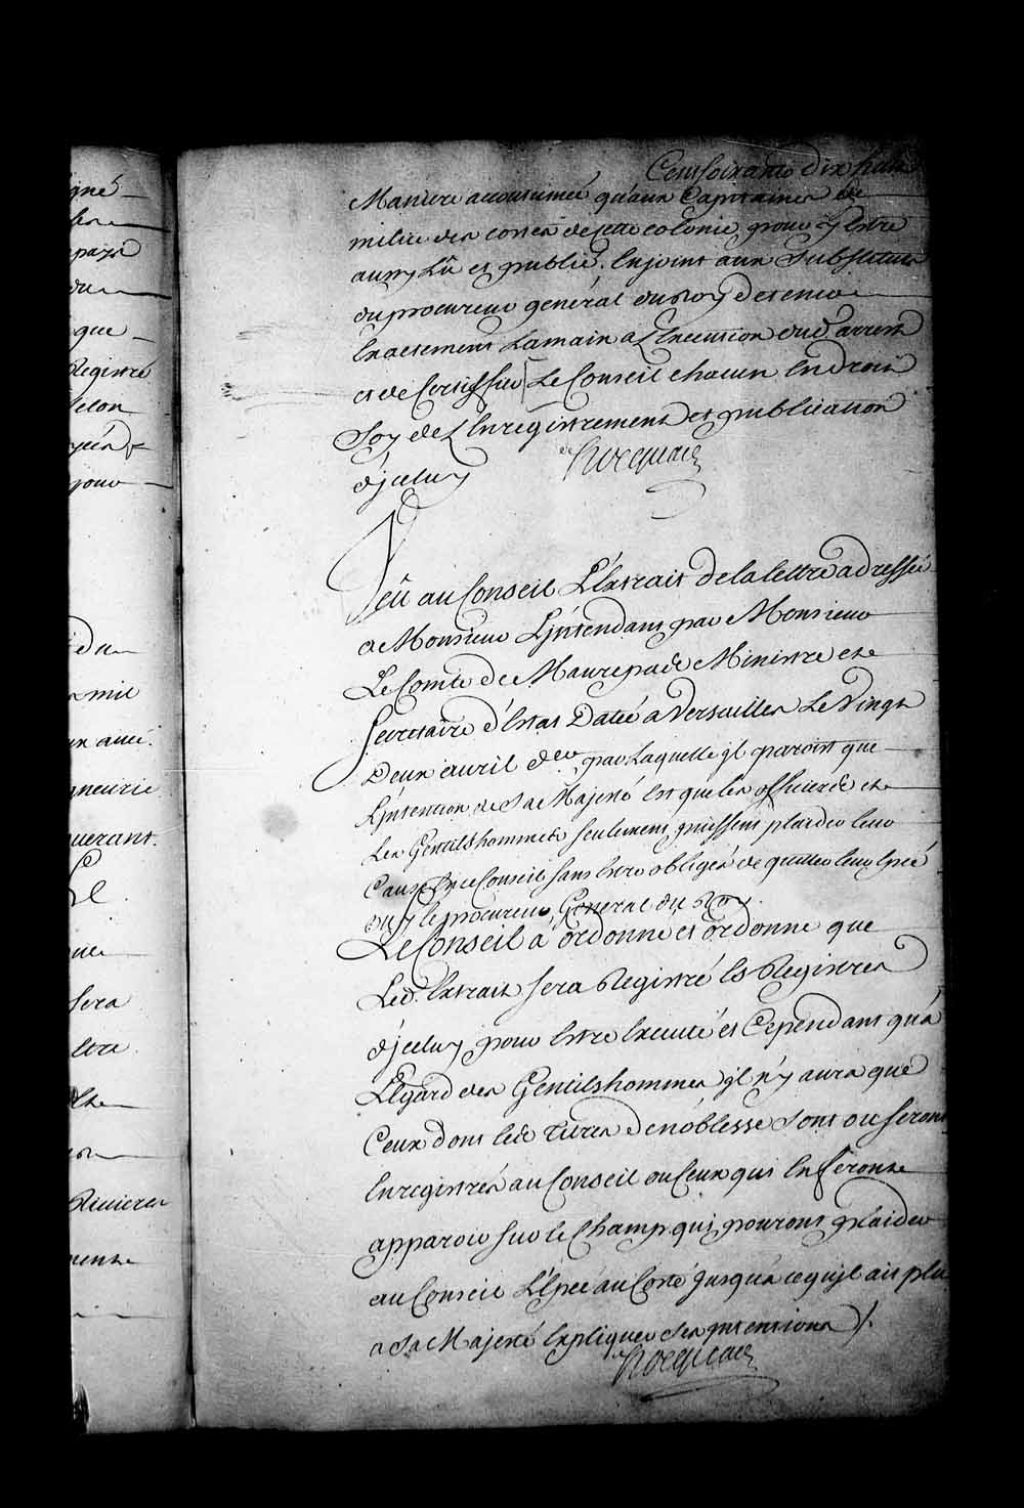 Cent soixante dix huit
gné
Maniere accoutumée qu'aux Capitaines de
milice des costes de cette colonie pour y Estre
pays
aussy Lû et publié. Enjoint aux Substituts
du procureur général du Roy de tenir
que
Exactement Lamain a L'Execution dud. arrest
Registré
et de Certiffier Le Conseil chacun Endroit
selon
Soy de L'Enregistrement et publication
d'jceluy
Hocquart
Veû au Conseil L'Extrait de la lettre adressée
a Monsieur L'jntendant par Monsieur
Le Comte de Maurepas Ministre et
mil
Secretaire d'Estat Datée a Versailles Le Vingt
Deux avril der. par Laquelle jl paroist que
L'jntention de Sa Majesté Est que les officiers et
gneurie
Les Gentilshommes seulement puissent plaider leur
uerant.
Cause En ce Conseil sans Estre obligés de quitter leur Epeé
ouy le procureur General du Roy.
Le Conseil a ordonné et ordonne que
Led. Extrait sera Registré Es Registres
sera
d'jceluy pour Estre Executé et Cependant qu'a
L'Egard des Gentilshommes jl n'y aura que
Ceux dont les titres de noblesse sont ou seront
Enregistrés au Conseil ou Ceux qui En feront
Rivieres
apparoir sur le Champ qui pouront plaider
au Conseil L'Epeé au Costé jusqu'a ce qu'jl ait plu
a Sa Majesté Expliquer ses jntentions ./.
Hocquart